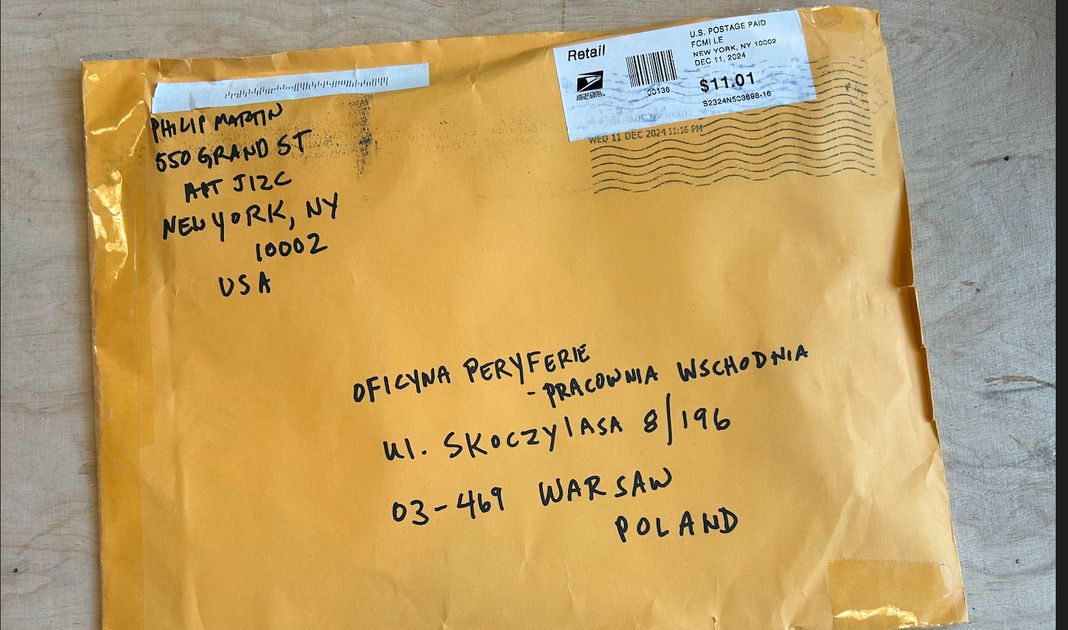 Retail
U.S. POSTAGE PAID
FCMI LE
NEW YORK, NY 10002
DEC 11, 2024
00136
$11.01
S2324N503698-16
WED 11 DEC 2024 11:16 PM
PHILIP MARTIN
550 GRAND ST
APT J12C
NEW YORK, NY
10002
USA
OFICYNA PERYFERIE
- PRACOWNIA WSCHODNIA
ul. SKOCZYlASA 8/196
03-469 WARSAW
POLAND